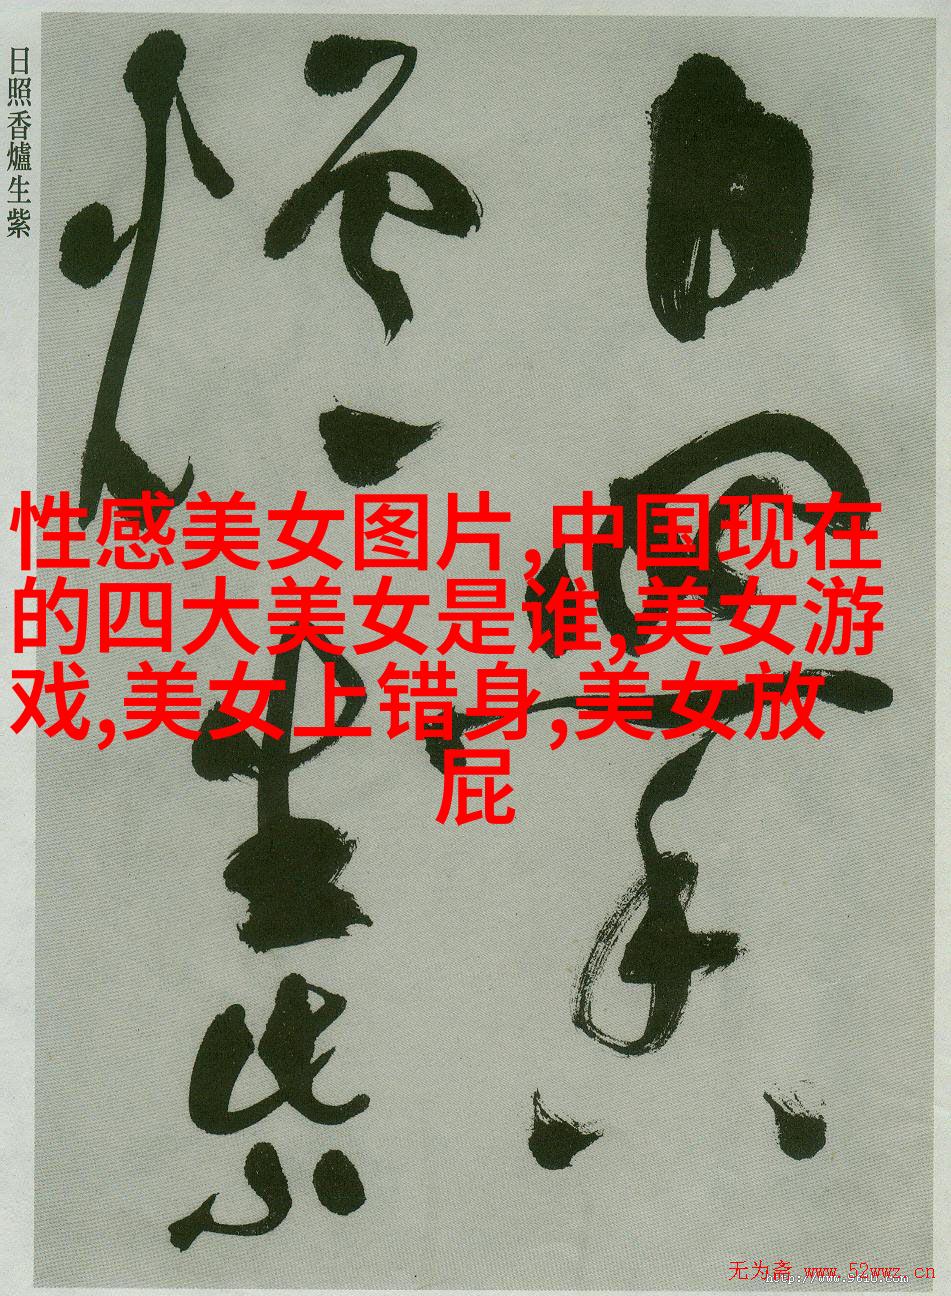 日照香爐生紫
性感美女图片,中国现在
的四大美女是谁,美女游
戏,美女上错身,美女放
屁
无为斋 www.52wwz.cn
http://www.9610.com